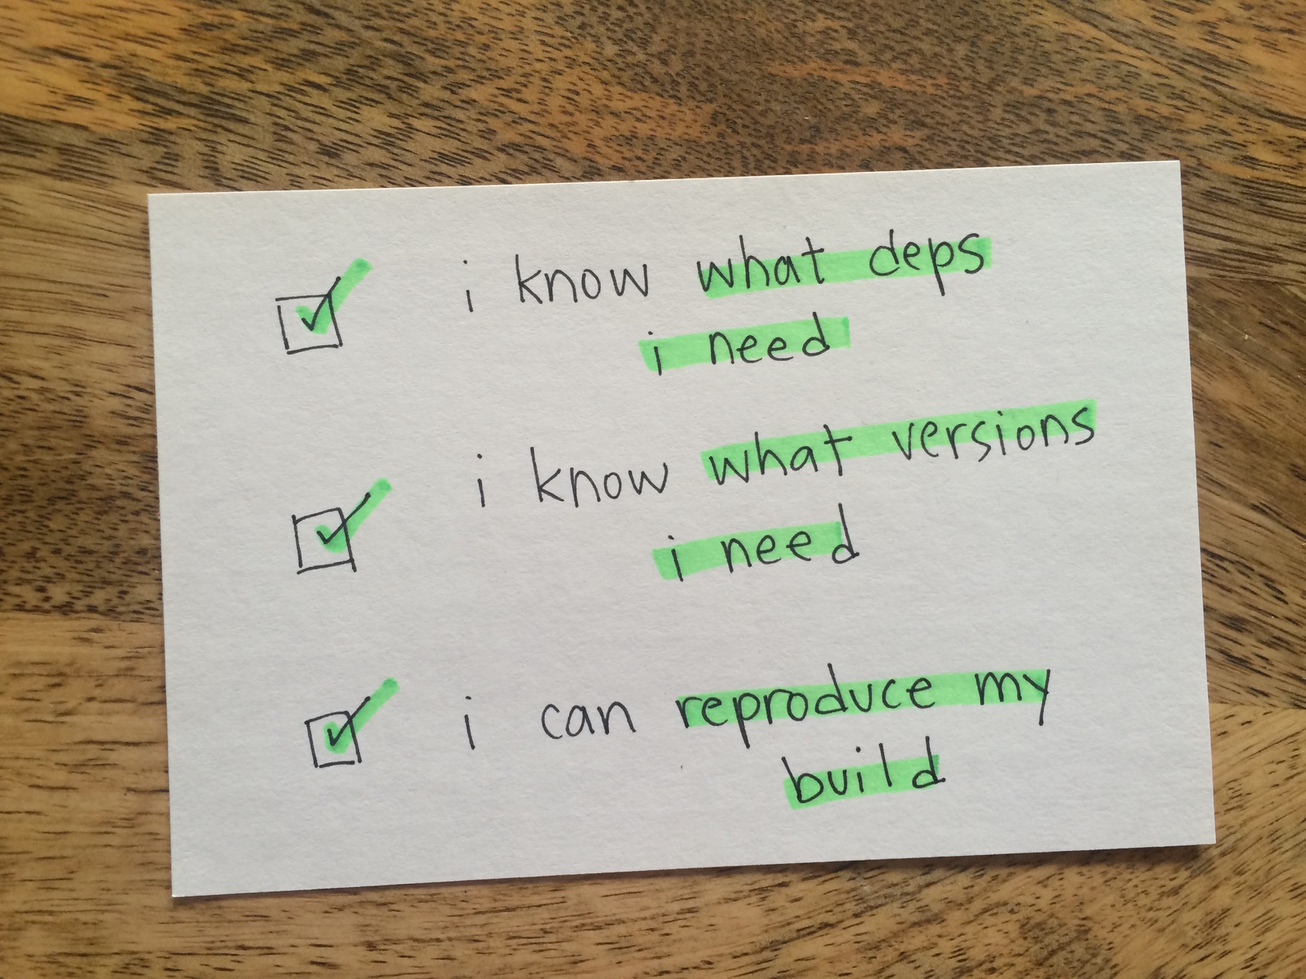 i know what deps
i need
i know what versions
i need
i can reproduce my
build